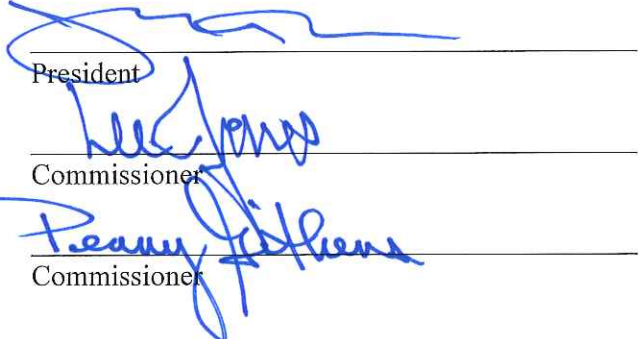 President
Lee Jones
Commissioner
Penny Githens
Commissioner